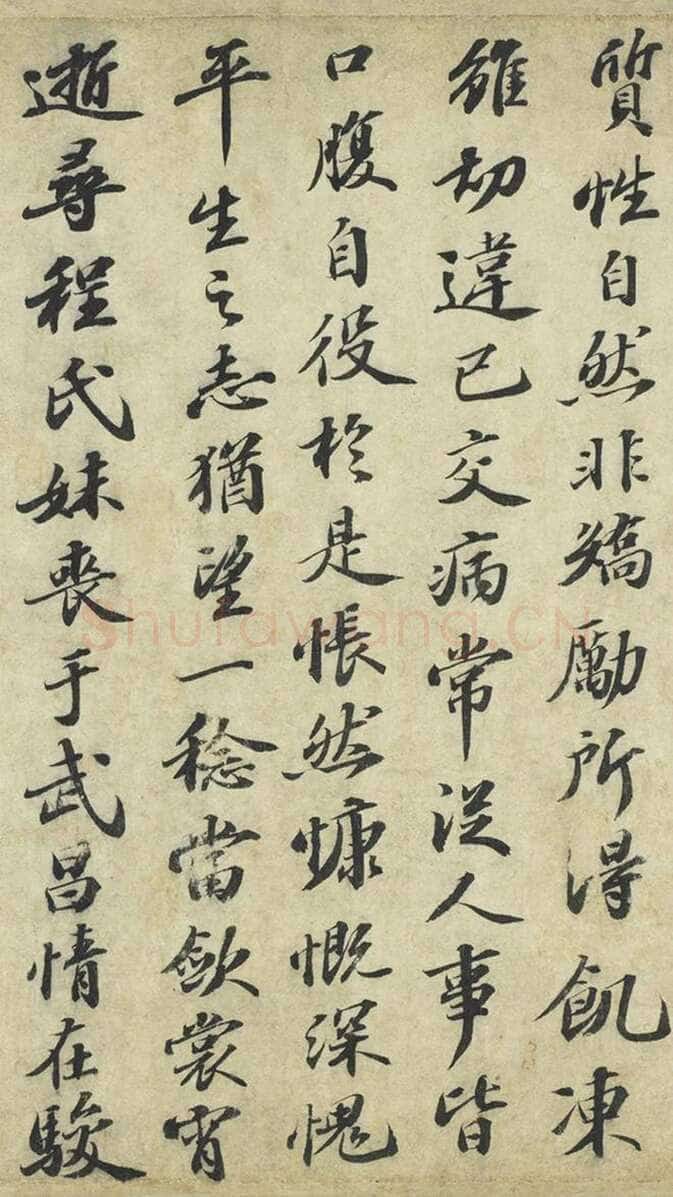 質性自然非矯勵所得飢凍
雖切違已交病常從人事皆
口腹自役於是悵然慷慨深愧
平生之志猶望一稔當斂裳宵
逝尋程氏妹喪于武昌情在駿
Shufawang.CN